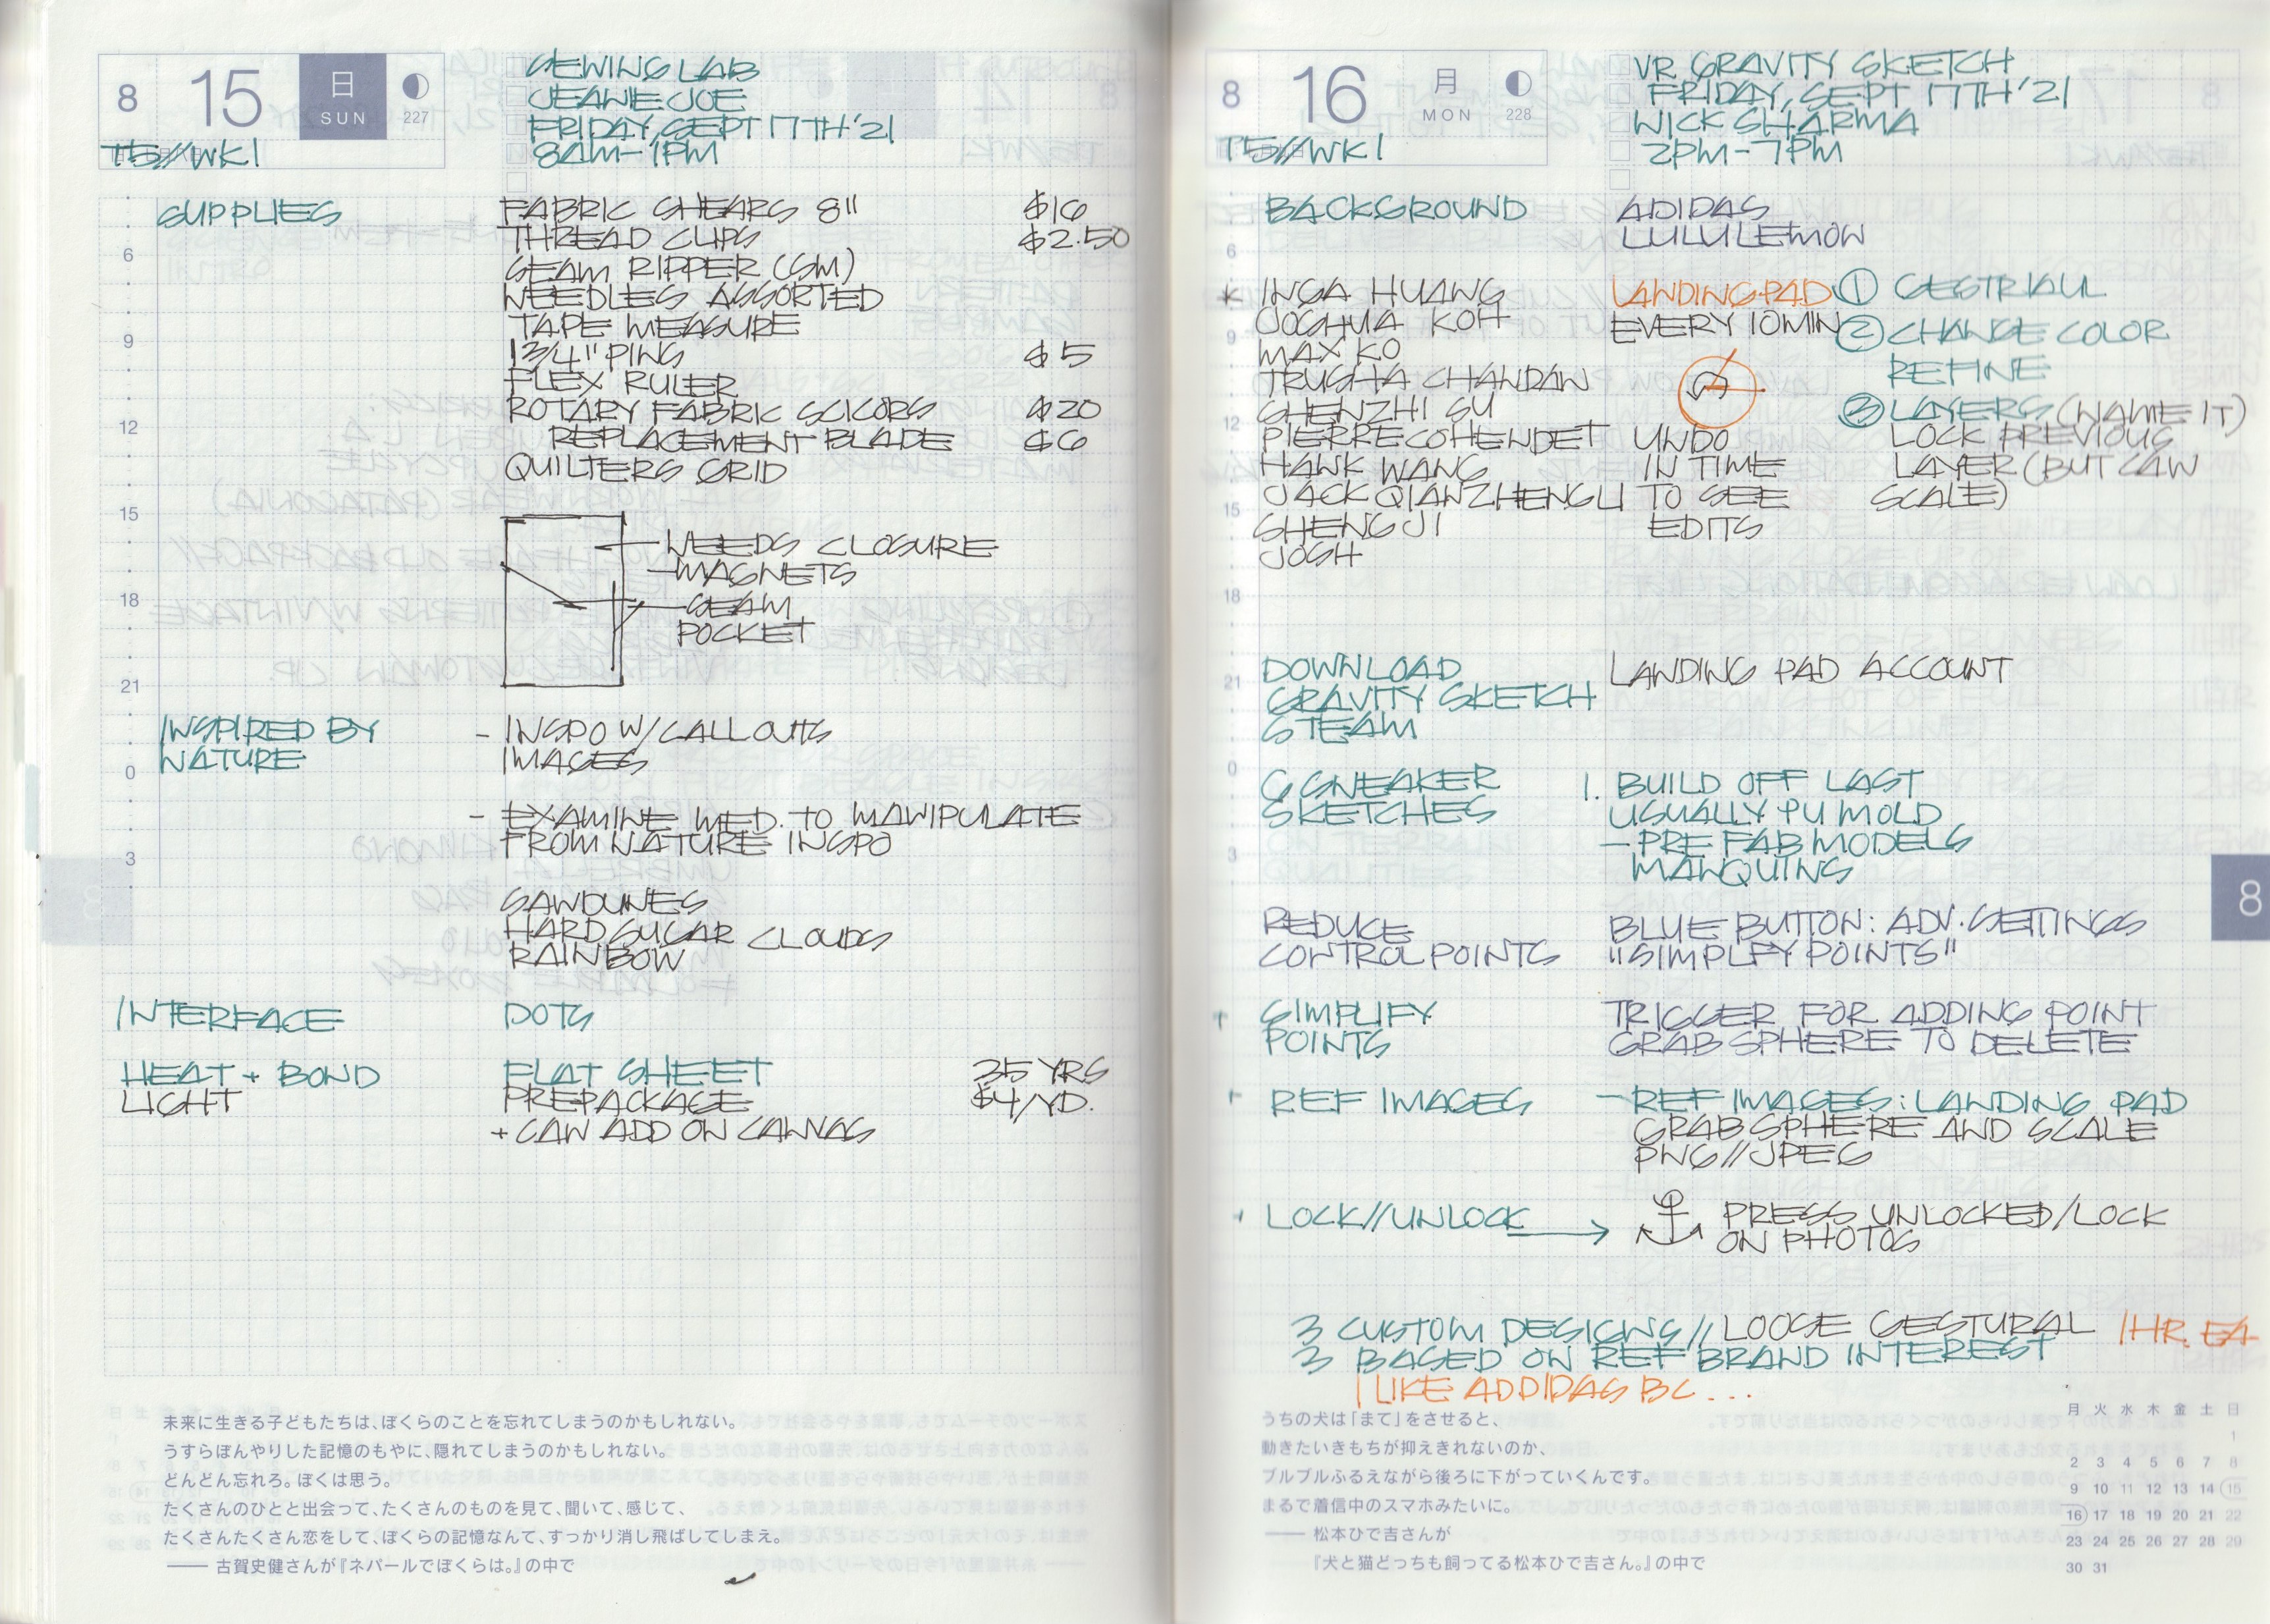 8 15 日 SUN 227
T5//WK1
SEWING LAB
JEANIE JOE
FRIDAY, SEPT 17TH '21
8AM-1PM
SUPPLIES
FABRIC SHEARS 8" $16
THREAD CLIPS $2.50
SEAM RIPPER (SM)
NEEDLES ASSORTED
TAPE MEASURE
1 3/4" PINS $5
FLEX RULER
ROTARY FABRIC SCICORS $20
REPLACEMENT BLADE $6
QUILTERS GRID
NEEDS CLOSURE
-MAGNETS
SEAM
POCKET
INSPIRED BY
NATURE
- INSPO W/CALLOUTS
IMAGES
- EXAMINE MED. TO MANIPULATE
FROM NATURE INSPO
SANDUNES
HARD SUGAR CLOUDS
RAINBOW
INTERFACE DOTS
HEAT + BOND FLAT SHEET 35 YRS
LIGHT PREPACKAGE $4/YD.
+ CAN ADD ON CANVAS
6
9
12
15
18
21
0
3
未来に生きる子どもたちは、ぼくらのことを忘れてしまうのかもしれない。
うすらぼんやりした記憶のもやに、隠れてしまうのかもしれない。
どんどん忘れろ。ぼくは思う。
たくさんのひとと出会って、たくさんのものを見て、聞いて、感じて、
たくさんたくさん恋をして、ぼくらの記憶なんて、すっかり消し飛ばしてしまえ。
―― 古賀史健さんが『ネパールでぼくらは。』の中で
8 16 月 MON 228
T5//WK1
VR GRAVITY SKETCH
FRIDAY, SEPT 17TH '21
NICK SHARMA
2PM-7PM
BACKGROUND ADIDAS
LULULEMON
INGA HUANG
JOSHUA KOH
MAX KO
TRUSHA CHANDAN
SHENZHI SU
PIERRE COHENDET
HAWK WANG
JACK QIANZHENGLI
SHENG JI
JOSH
LANDING PAD
EVERY 10MIN
UNDO
IN TIME
TO SEE
EDITS
① GESTRIAUL
② CHANGE COLOR
REFINE
③ LAYERS (NAME IT)
LOCK PREVIOUS
LAYER (BUT CAN
SCALE)
DOWNLOAD LANDING PAD ACCOUNT
GRAVITY SKETCH
STEAM
6 SNEAKER
SKETCHES
1. BUILD OFF LAST
USUALLY PU MOLD
- PRE FAB MODELS
MANQUINS
REDUCE
CONTROL POINTS
BLUE BUTTON: ADV. SETTINGS
"SIMPLFY POINTS"
SIMPLIFY
POINTS
TRIGGER FOR ADDING POINT
GRAB SPHERE TO DELETE
REF IMAGES - REF IMAGES: LANDING PAD
GRAB SPHERE AND SCALE
PNG//JPEG
LOCK//UNLOCK PRESS UNLOCKED/LOCK
ON PHOTOS
3 CUSTOM DESIGNS // LOOSE GESTURAL 1HR. EA
3 BASED ON REF BRAND INTEREST
I LIKE ADDIDAS BC...
6
9
12
15
18
21
0
3
8
うちの犬は「まて」をさせると、
動きたいきもちが抑えきれないのか、
ブルブルふるえながら後ろに下がっていくんです。
まるで着信中のスマホみたいに。
―― 松本ひで吉さんが
『犬と猫どっちも飼ってる松本ひで吉さん。』の中で
月 火 水 木 金 土 日
1
2 3 4 5 6 7 8
9 10 11 12 13 14 15
16 17 18 19 20 21 22
23 24 25 26 27 28 29
30 31